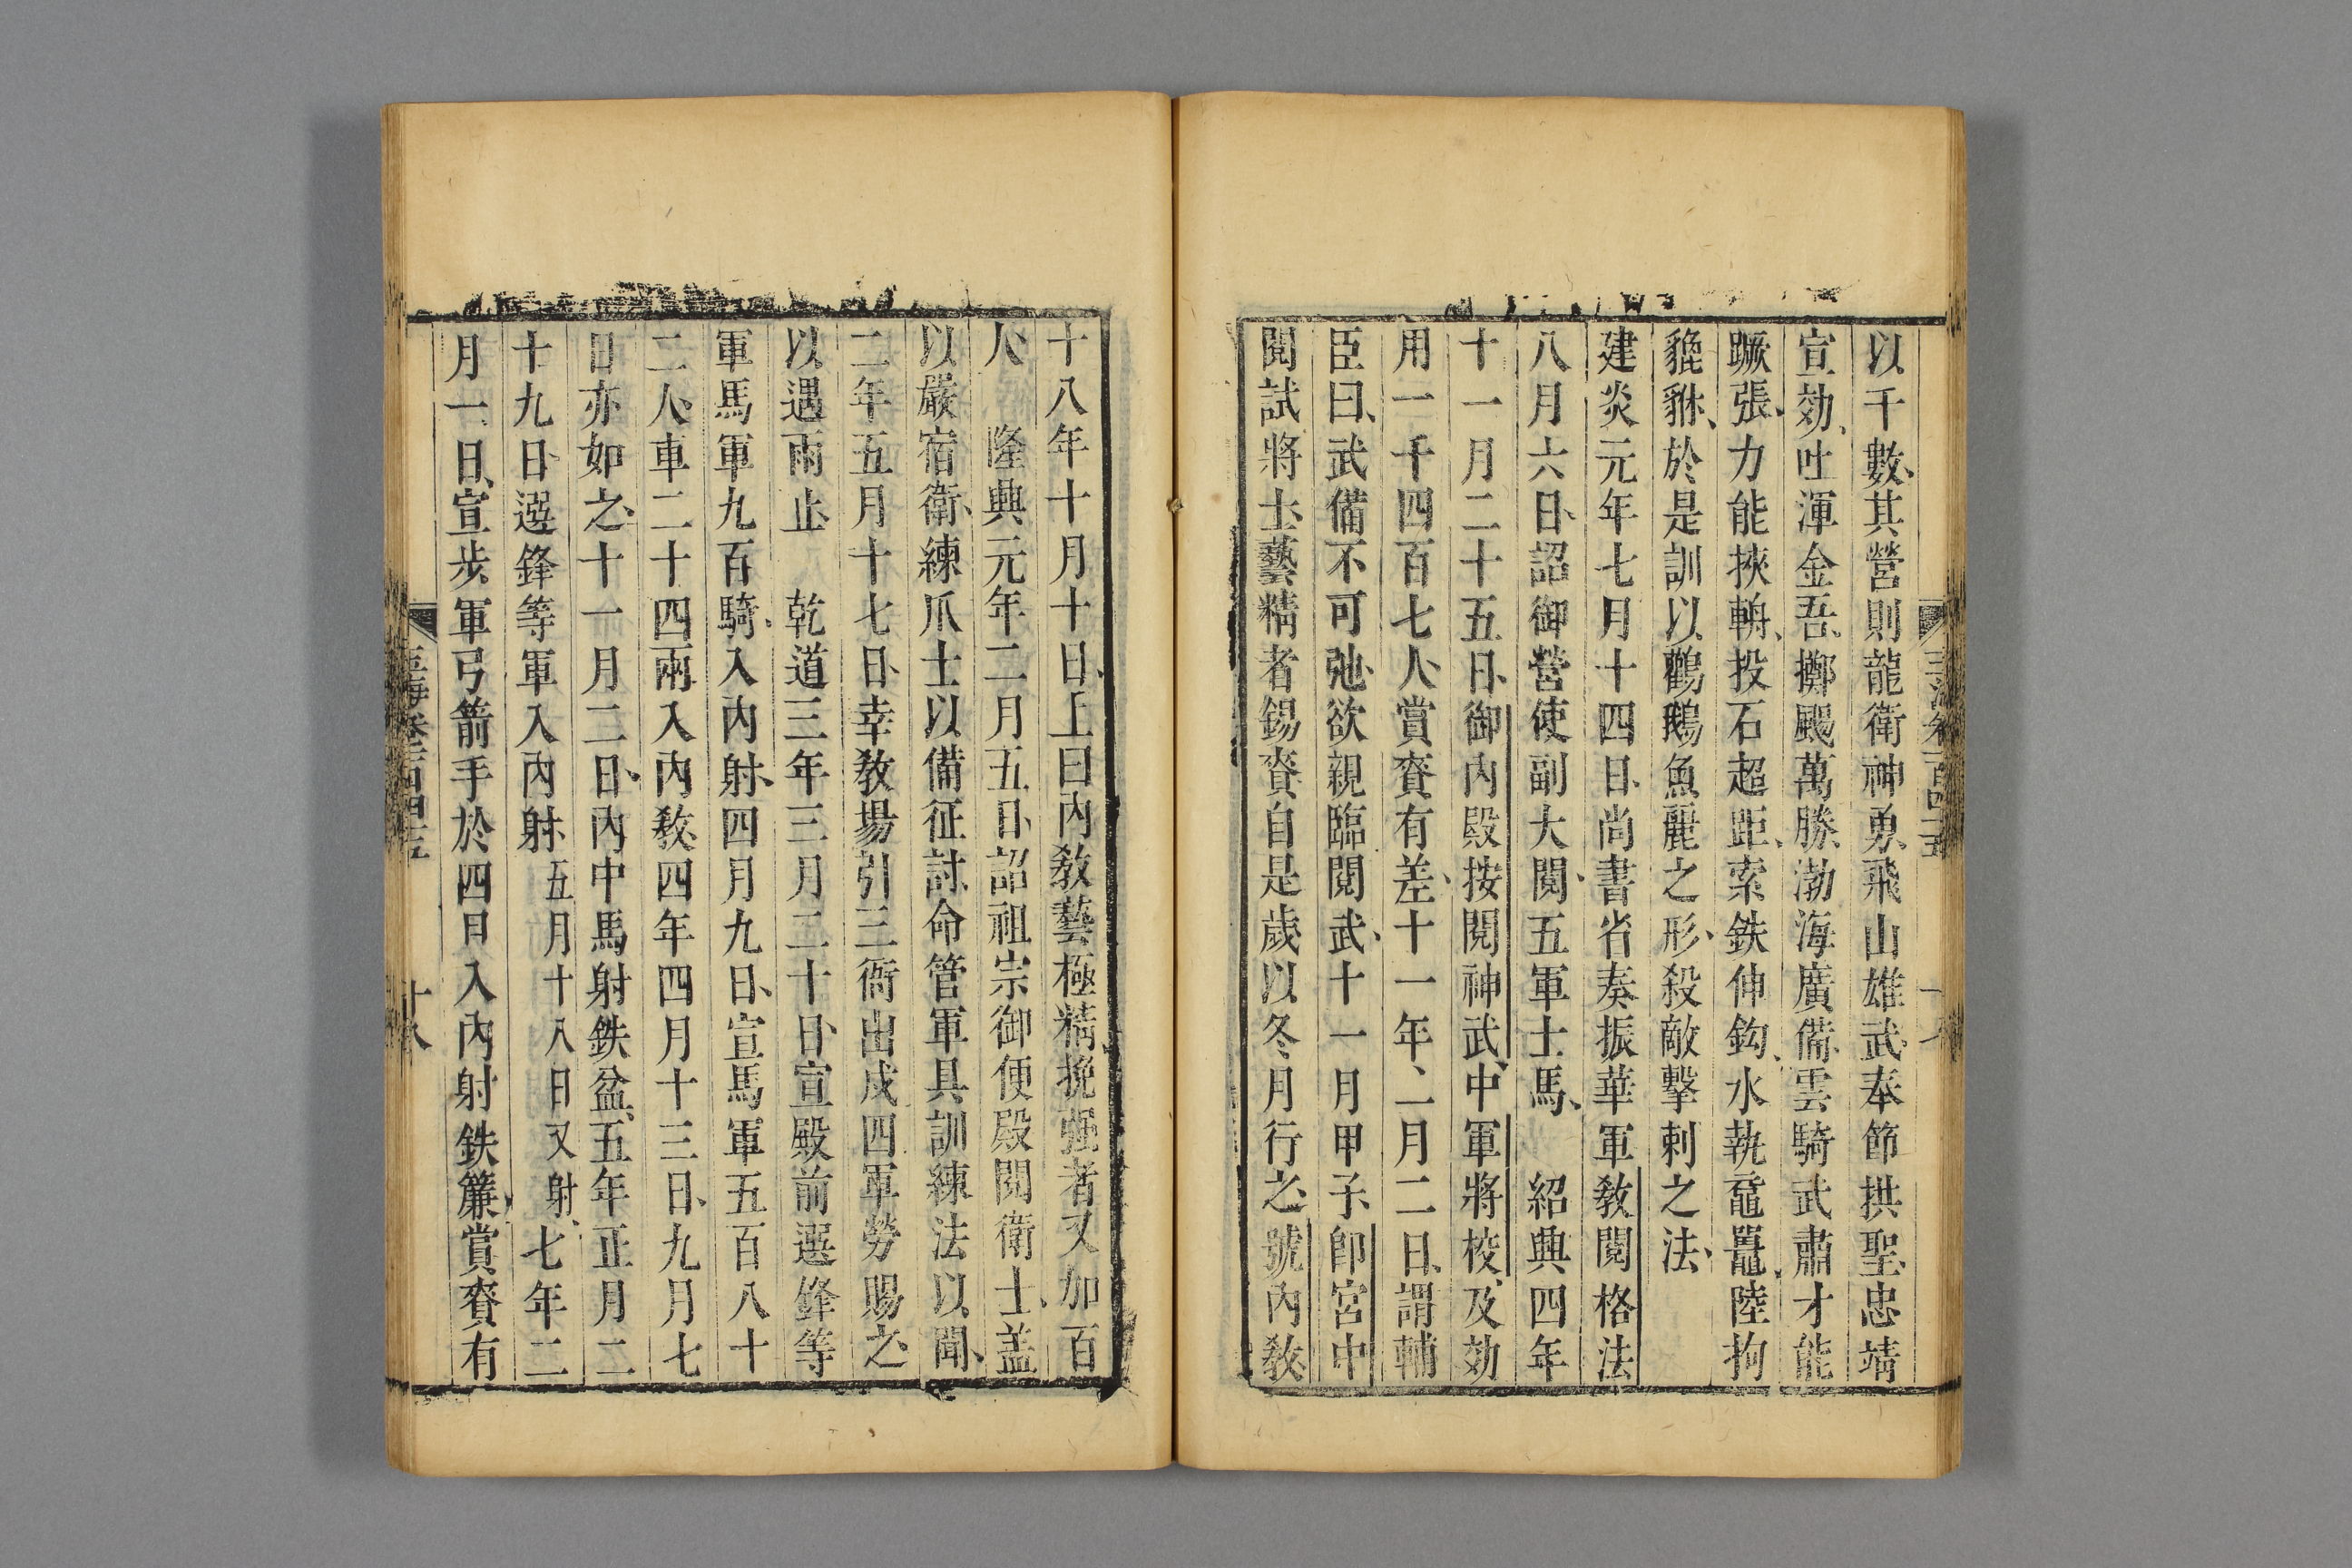 以千數其營則龍衛神勇飛山雄武奉節拱聖忠靖
宣効吐渾金吾擲颺萬勝渤海廣備雲騎武肅才能
蹶張力能挾輈投石超距索鉄伸鈎水執黿鼉陸拘
貔貅於是訓以鸛鵝魚麗之形殺敵擊刺之法
建炎元年七月十四日尚書省奏振華軍教閱格法
八月六日詔御營使副大閱五軍士馬　紹興四年
十一月二十五日御内殿按閱神武中軍將校及効
用一千四百七人賞賚有差十一年二月二日謂輔
臣曰武備不可弛欲親臨閱武十一月甲子卽宮中
閱試將士藝精者錫賚自是歲以冬月行之號內教
十八年十月十日上曰內教藝極精挽强者又加百
人　隆興元年二月五日詔祖宗御便殿閱衛士盖
以嚴宿衛練爪士以備征討命管軍具訓練法以聞
二年五月十七日幸教場引三衙出戍四軍勞賜之
以遇雨止　乾道三年三月二十日宣殿前選鋒等
軍馬軍九百騎入内射四月九日宣馬軍五百八十
二人車二十四兩入内教四年四月十三日九月七
日亦如之十一月二日內中馬射鉄盆五年正月二
十九日選鋒等軍入內射五月十八日又射七年二
月一日宣步軍弓箭手於四日入內射鉄簾賞賚有
玉海卷百四十五
十八